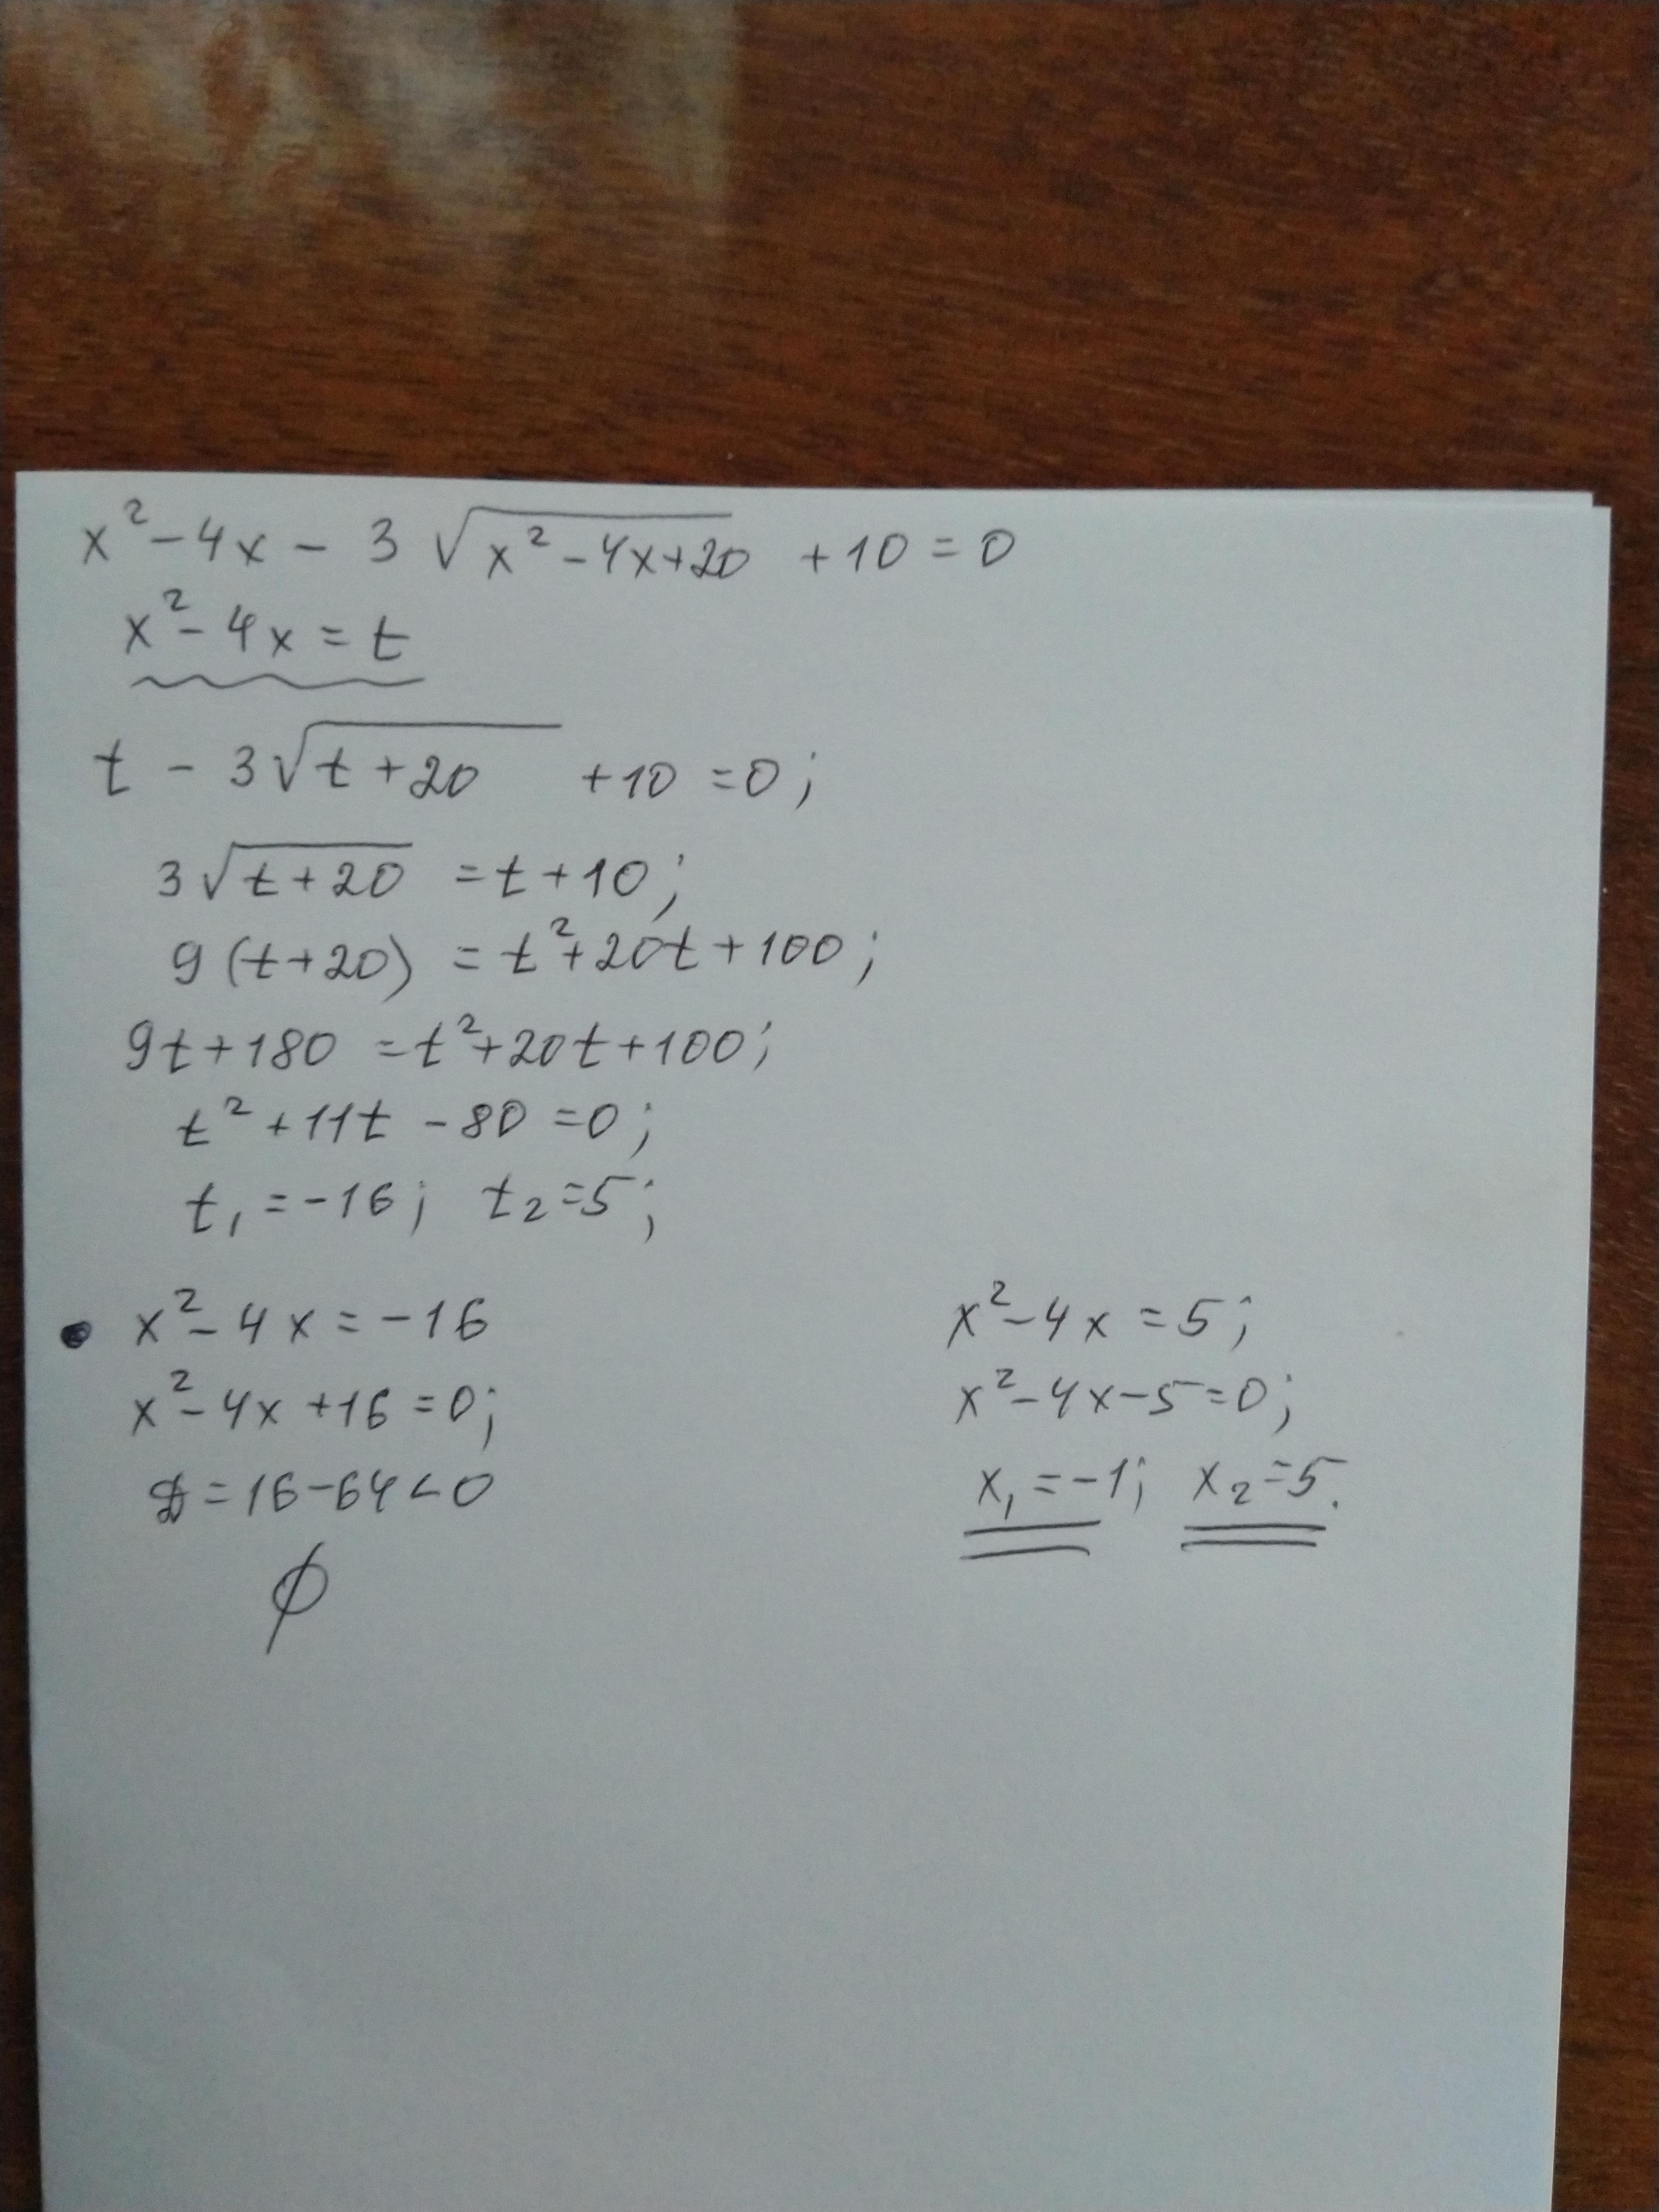 x² - 4x - 3 √(x² - 4x + 20) + 10 = 0
x² - 4x = t
t - 3√(t + 20) + 10 = 0;
3√(t + 20) = t + 10;
9(t + 20) = t² + 20t + 100;
9t + 180 = t² + 20t + 100;
t² + 11t - 80 = 0;
t₁ = -16; t₂ = 5;
• x² - 4x = -16
x² - 4x + 16 = 0;
D = 16 - 64 < 0
∅
x² - 4x = 5;
x² - 4x - 5 = 0;
x₁ = -1; x₂ = 5.